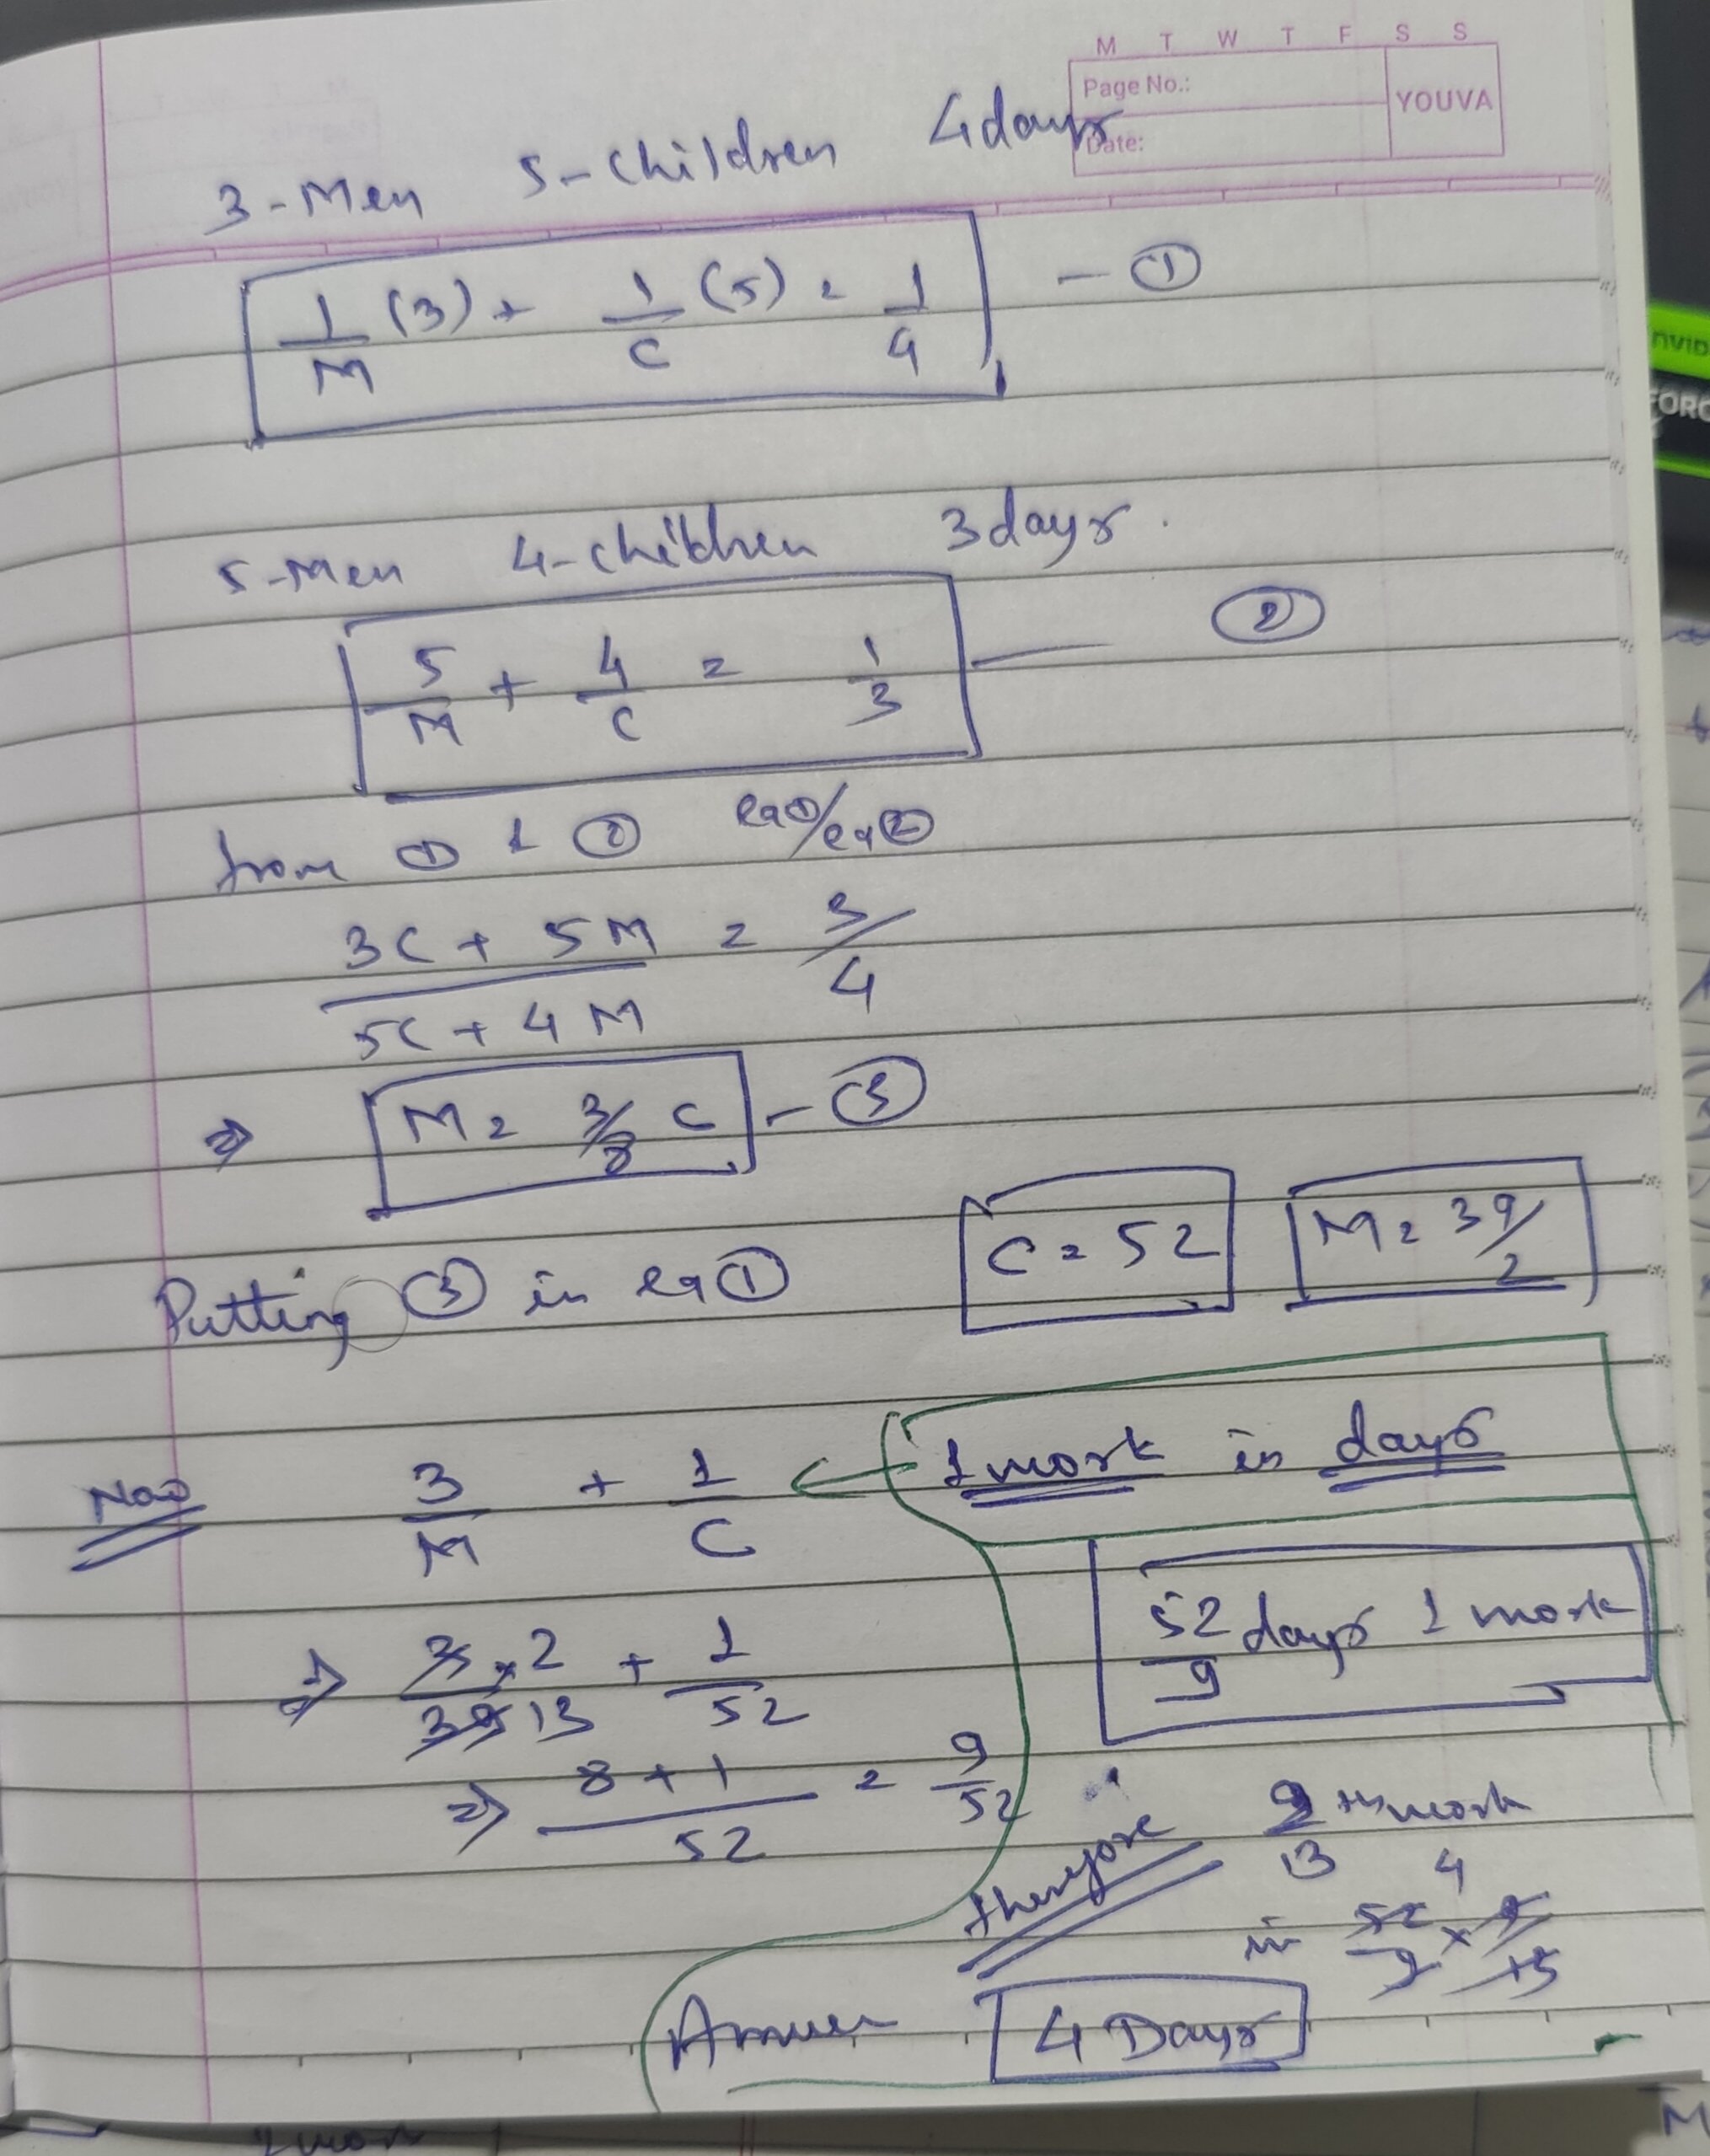 M T W T F S S
Page No.:
YOUVA
Date:
3-Men 5-Children 4days
1/M (3) + 1/C (5) = 1/4 - ①
5-Men 4-children 3days.
5/M + 4/C = 1/3 — ②
from ① & ② eq①/eq②
(3C + 5M)/(5C + 4M) = 3/4
⇒ M = 3/8 C - ③
Putting ③ in eq① C = 52 M = 39/2
Now 3/M + 1/C ← 1 work in days
52/9 days 1 work
⇒ (3×2)/(39 13) + 1/52
⇒ (8+1)/52 = 9/52
Therefore 9/13 th work
in 52/9 × 9/13 4
Answer 4 Days
NVID
FORC